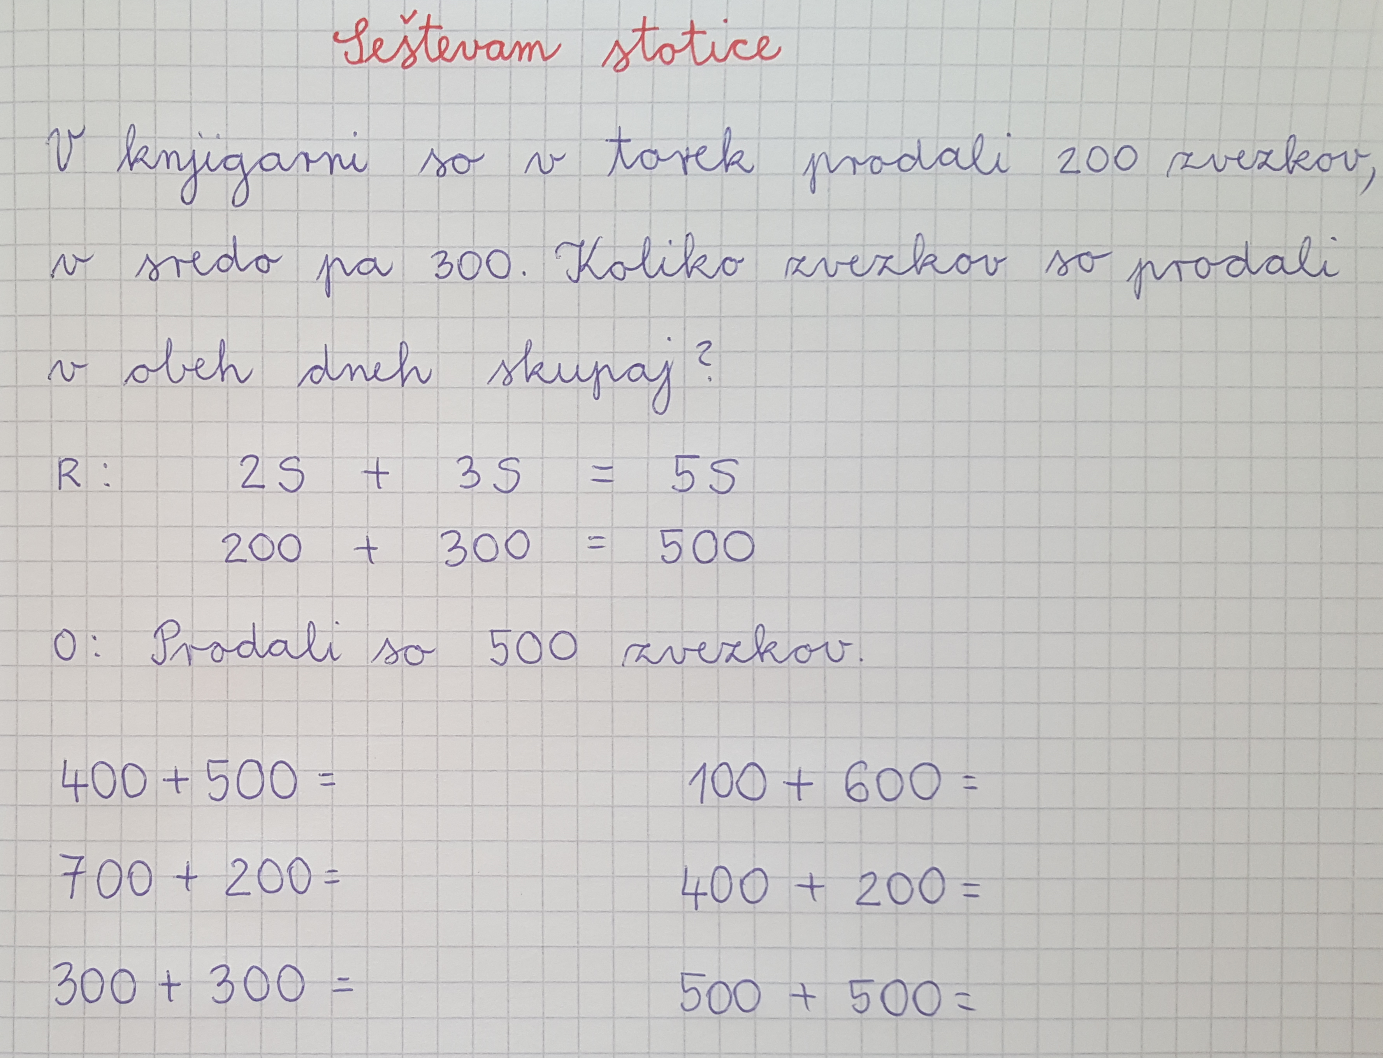 Seštevam stotice
V knjigarni so v torek prodali 200 zvezkov,
v sredo pa 300. Koliko zvezkov so prodali
v obeh dneh skupaj?
R: 2S + 3S = 5S
200 + 300 = 500
O: Prodali so 500 zvezkov.
400 + 500 = 100 + 600 =
700 + 200 = 400 + 200 =
300 + 300 = 500 + 500 =